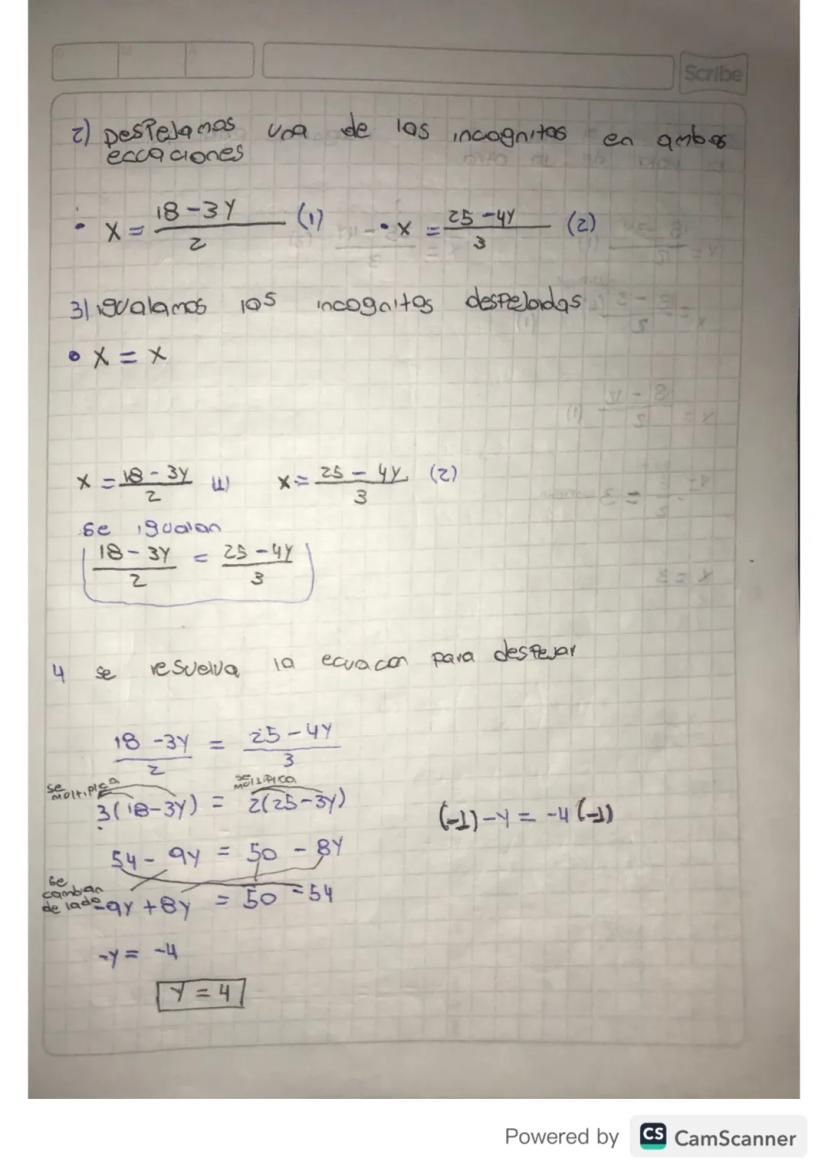 Scribe
2) Despejamos una de las incognitas en ambas
eccaciones
• X = 18-3Y / 2 (1) • X = 25-4Y / 3 (2)
3) igualamos los incognitas despejadas
• X = X
X = 18-3Y / 2 (1) X = 25-4Y / 3 (2)
se igualan
18-3Y / 2 = 25-4Y / 3
4 se resuelva la ecuacon para despejar
18-3Y / 2 = 25-4Y / 3
se moltiplica se moltiplica
3(18-3Y) = 2(25-3Y) (-1)-Y = -4(-1)
54-9Y = 50-8Y
se cambian de lado -9Y+8Y = 50=54
-Y = -4
Y = 4
Powered by CS CamScanner